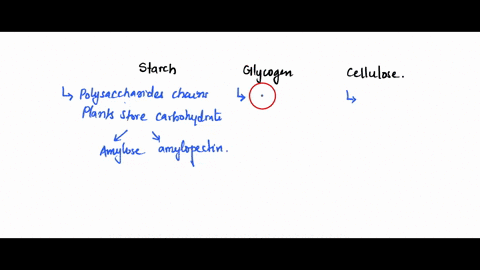 Starch Glycogen Cellulose.
↳ Polysaccharides chains ↳ ↳
Plants store carbohydrate
Amylose amylopectin.